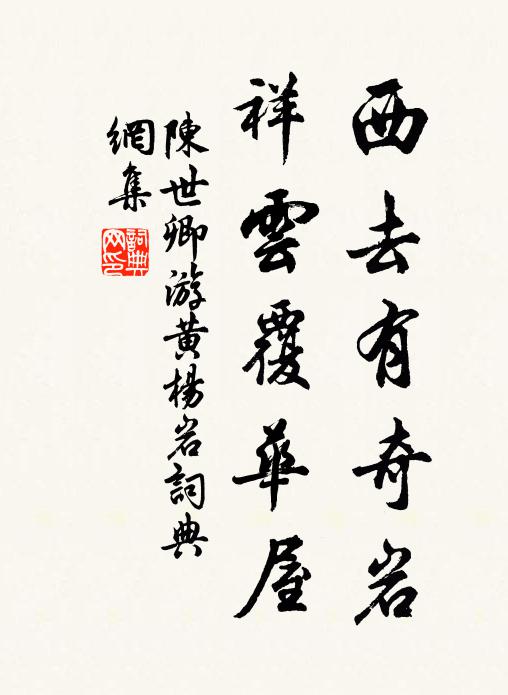 西去有奇岩
祥雲覆華屋
陳世卿游黄楊岩詞典
網集
詞典
网印